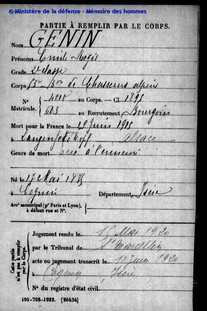 © Ministère de la défense - Mémoire des hommes
PARTIE À REMPLIR PAR LE CORPS.
Nom GÉNIN
Prénoms Emile
Grade 2e classe
Corps Bon de Chasseurs alpins
N° Matricule. au Corps. — Cl. 1898
603 au Recrutement Bourgoin
Mort pour la France le Juin 1915
à Alsace
Genre de mort tué à l'ennemi
Né le 17 Mai
à Département Isère
Arr municipal (pr Paris et Lyon), à défaut rue et N°.
Cette partie n'est pas à remplir par le Corps.
Jugement rendu le Mai 1920
par le Tribunal de St Marcellin
acte ou jugement transcrit le 10 juin 1920
à Isère
N° du registre d'état civil.
101-708-1922. [26434]